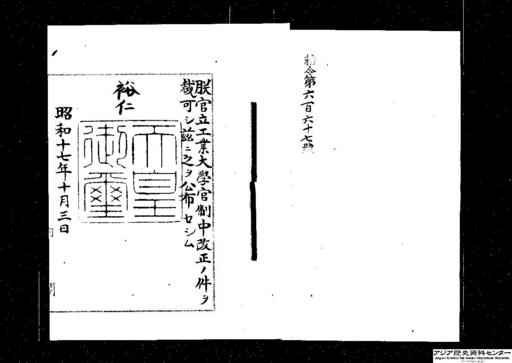 勅令第六百六十七號
朕官立工業大學官制中改正ノ件ヲ
裁可シ茲ニ之ヲ公布セシム
裕仁
天皇
御璽
昭和十七年十月三日
アジア歴史資料センター
Japan Center for Asian Historical Records